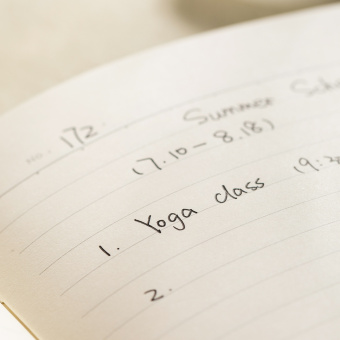 NO. 172.
Summer Sch
(7.10 - 8.18)
1. Yoga class (9:3
2.